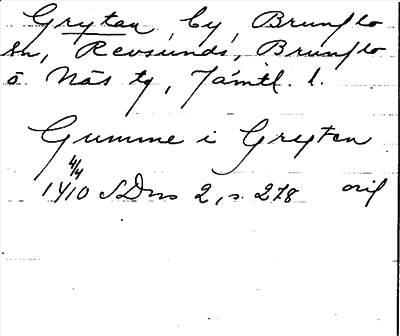 Grytan, by, Brunflo
sn, Revsunds, Brunflo
o Näs tg, Jämtl. l.
Gumme i Grytan
4/4
1410 SDns 2, s. 278 orig